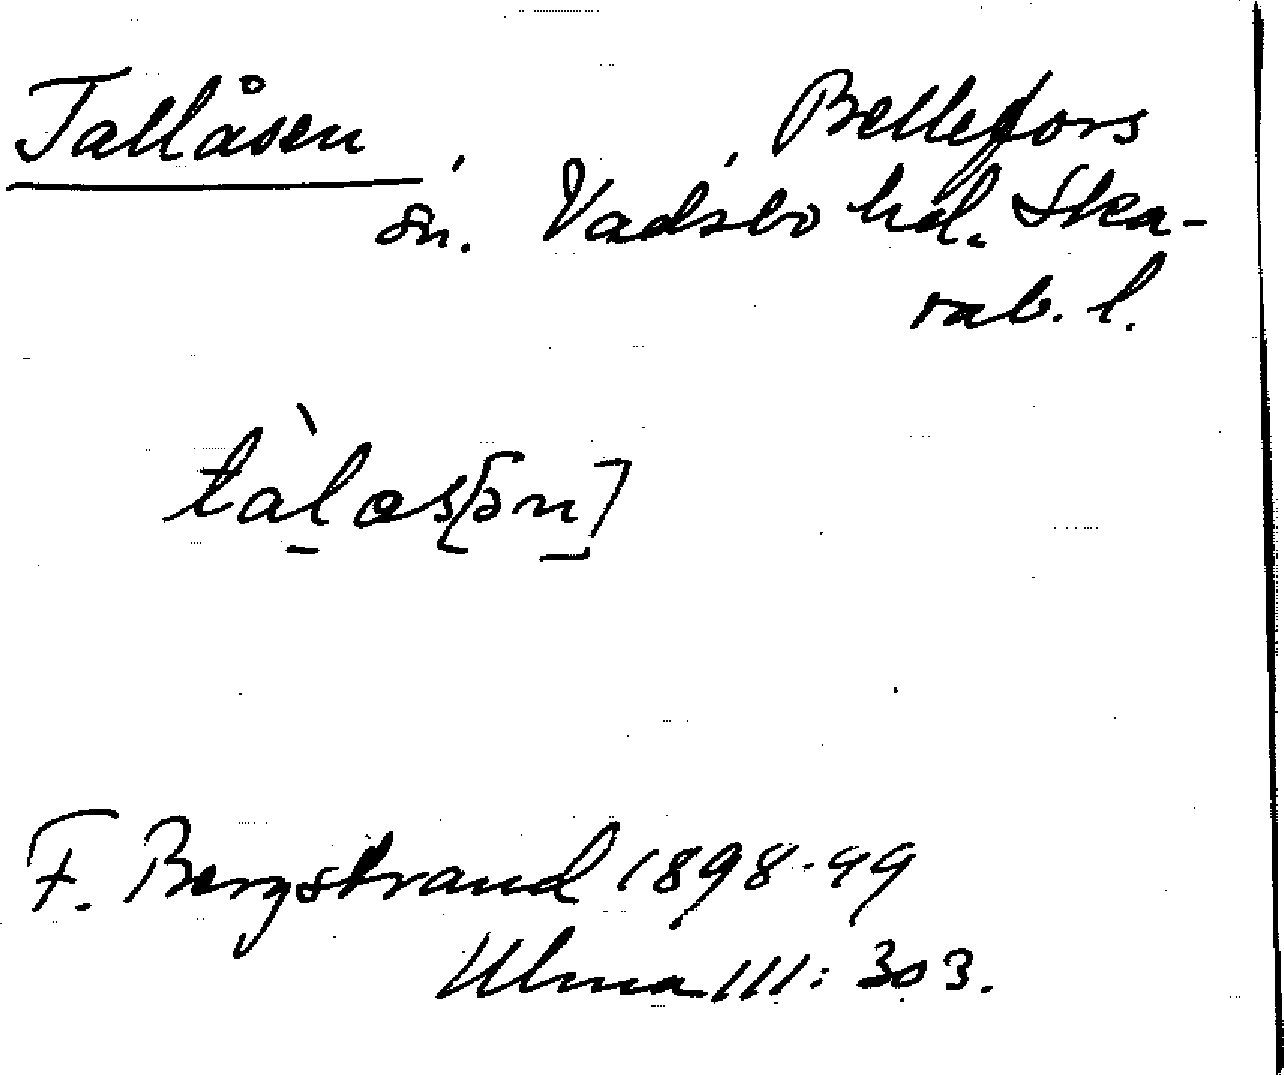 Tallåsen Bellefors
sn. Vadsbo hd. Ska-
rab. l.
tàl̠æs[ən]
F. Bergstrand 1898-99
Ulma 111: 303.